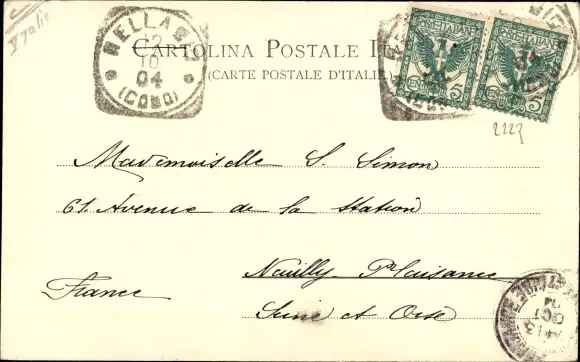 Italie
BELLAGIO
12
10
04
(COMO)
CARTOLINA POSTALE
(CARTE POSTALE D'ITALIE)
POSTE ITALIANE
CENTESIMI 5
POSTE ITALIANE
CENTESIMI 5
2223
Mademoiselle S. Simon
61. Avenue de la Station
Neuilly-Plaisance
France
Seine et Oise
13
OCT
04